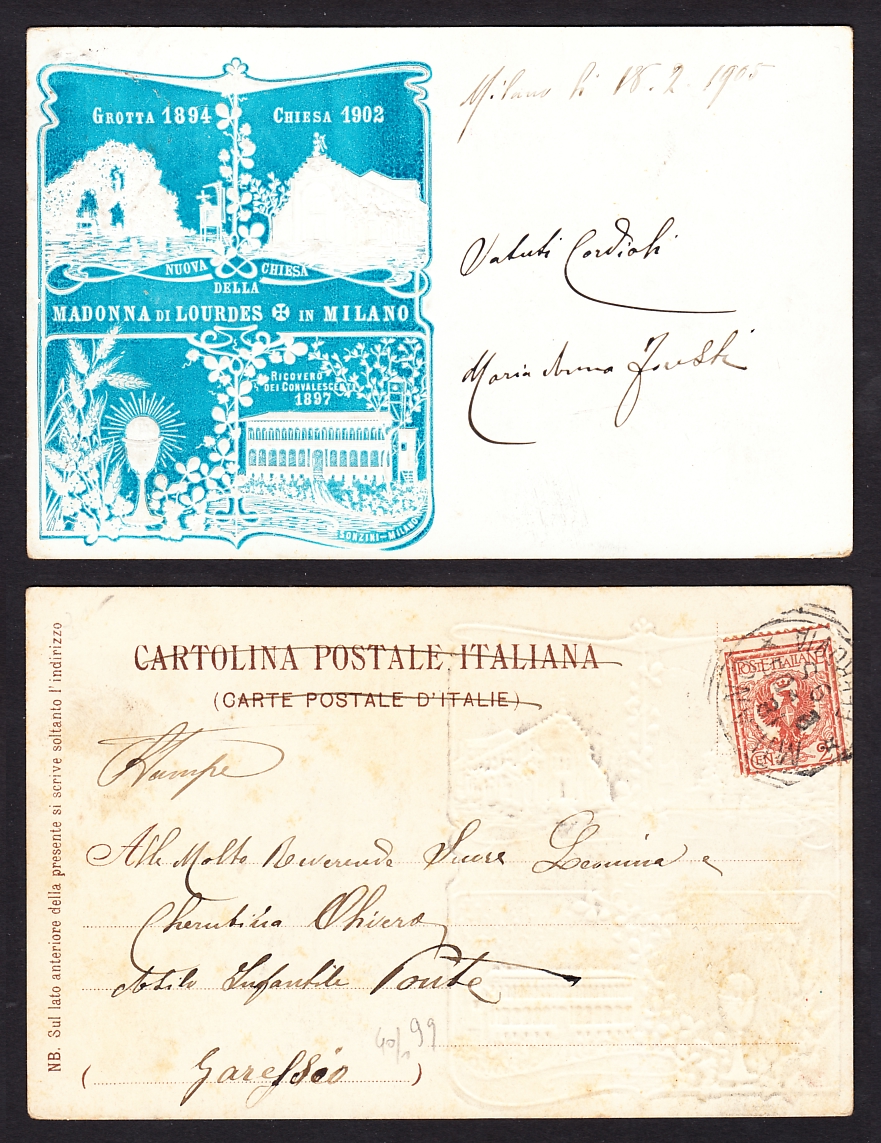 GROTTA 1894
CHIESA 1902
NUOVA CHIESA
DELLA
MADONNA DI LOURDES ✠ IN MILANO
RICOVERO
DEI CONVALESCENTI
1897
SONZINI-MILANO
Milano li 18.2.1905
Saluti Cordiali
Maria Anna
CARTOLINA POSTALE ITALIANA
(CARTE POSTALE D'ITALIE)
NB. Sul lato anteriore della presente si scrive soltanto l'indirizzo
POSTE ITALIANE
CEN. 2
MILANO
FERROVIA
Stampe
Alle Molto Reverende Suore Leonina e
Cherubina Olivero
Asilo Infantile Ponte
40/ 99
( Garessio )